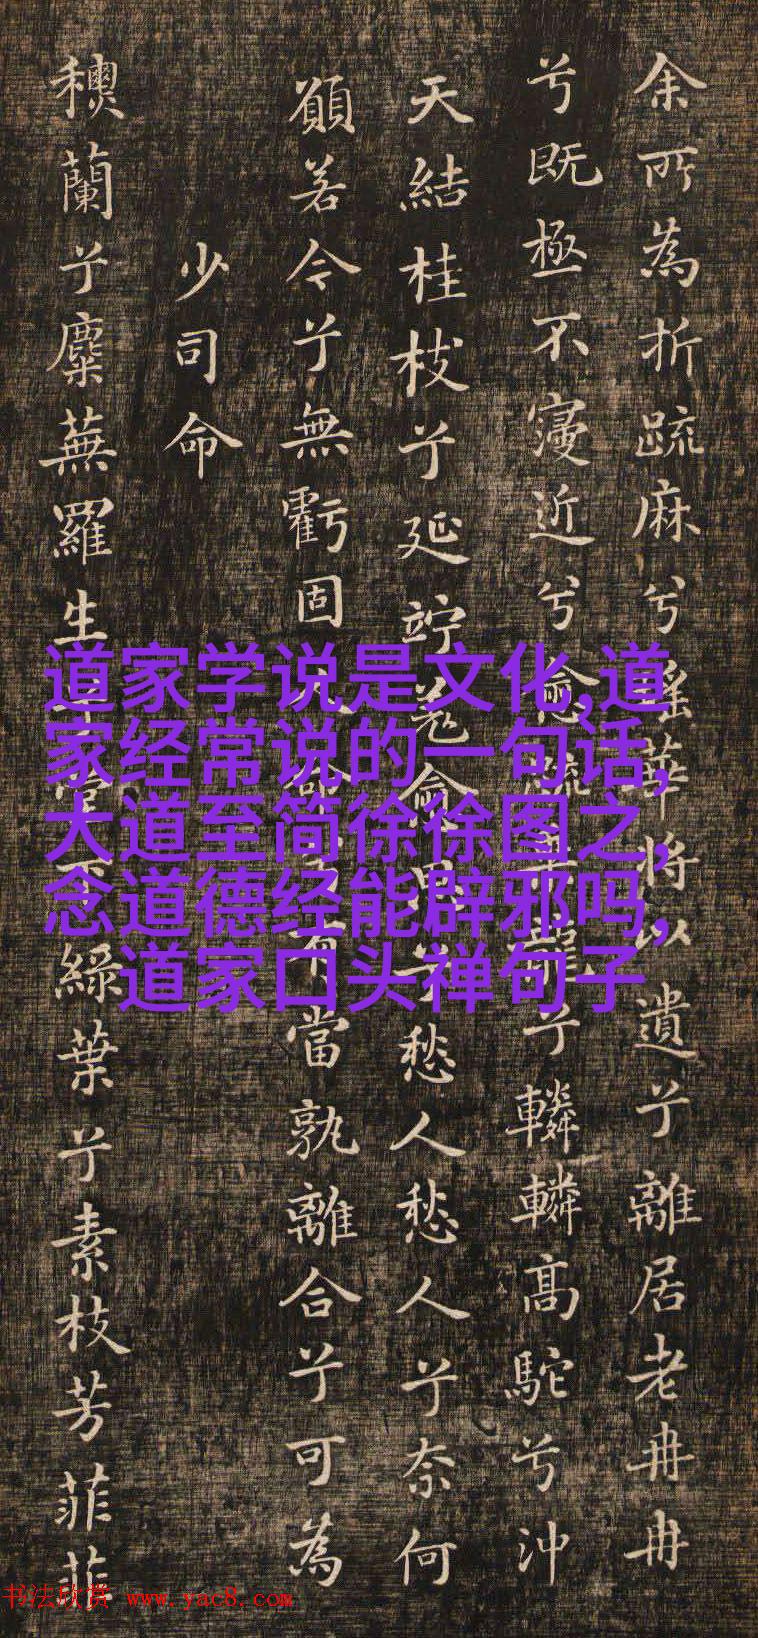 余所為折疏麻兮瑤華將以遺兮離居老冉冉
兮既極不寖近兮愈疏乘龍兮轔轔高駝兮沖
天結桂枝兮延竚羌愈思兮愁人愁人兮奈何
願若今兮無虧固人命兮有當孰離合兮可為
少司命
蘭兮麋蕪羅生兮堂下綠葉兮素枝芳菲菲
道家学说是文化,道
家经常说的一句话,
大道至简徐徐图之,
念道德经能辟邪吗,
道家口头禅句子
书法欣赏 www.yac8.com